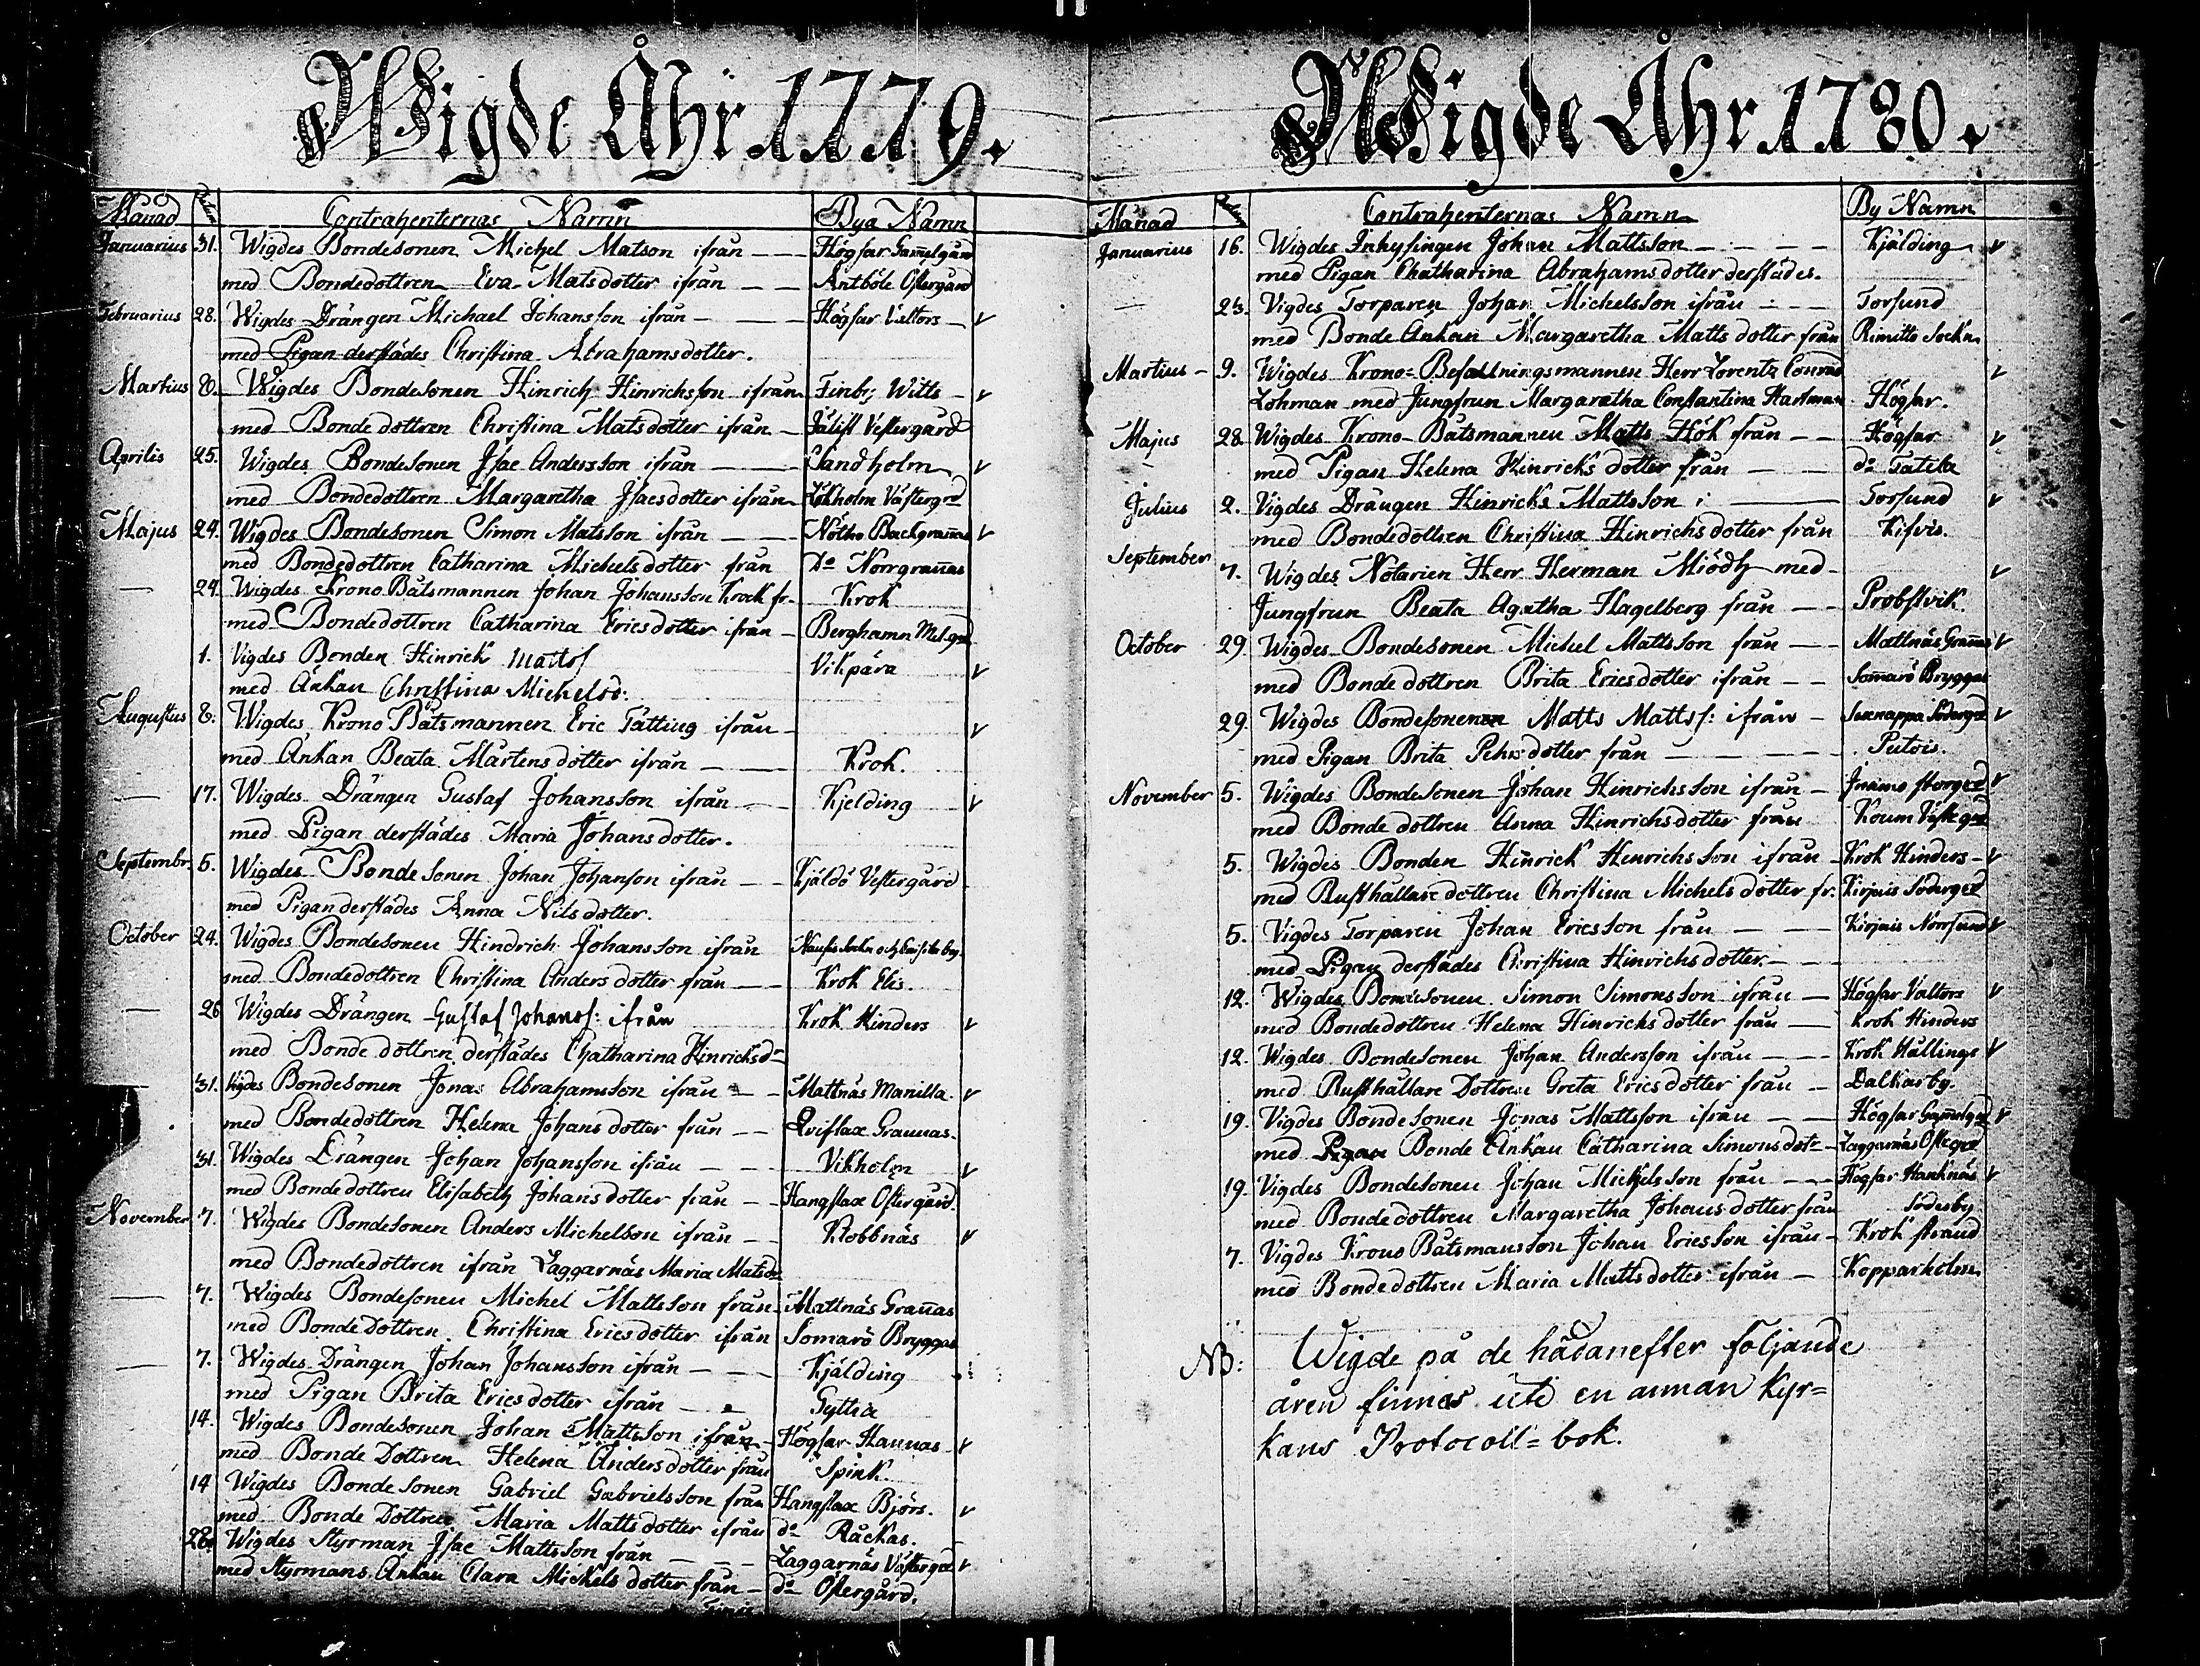 Wigde Åhr 1779.
Månad Contrahenternas Namn Bya Namn
Januarius 31. Wigdes Bondesonen Michel Matson ifrån Högsar Gam̄elgård
med Bondedottren Eva Matsdotter ifrån Antböle Östergård
Februarius 28. Wigdes Drängen Michael Johansson ifrån Högsar Valtors
med Pigan derstädes Christina Abrahamsdotter.
Martius Wigdes Bondesonen Hinrich Hinrichsson ifrån Finby Witts
med Bondedottren Christina Matsdotter ifrån Vestergård
Aprilis 25. Wigdes Bondesonen Isac Andersson ifrån Sandholm
med Bondedottren Margaretha Isacsdotter ifrån Lökholm Västergrd
Majus 24. Wigdes Bondesonen Simon Matsson ifrån Nötho Backgran̄as
med Bondedottren Catharina Michelsdotter från Do Norrgran̄as
— 24. Wigdes Krono Båtsmannen Johan Johansson Krok fr. Krok
med Bondedottren Catharina Ericsdotter ifrån Berghamn Mel.grd
1. Vigdes Bonden Hinrick Mattss Vikpära
med Änkan Christina Michelsd:
Augustus 8. Wigdes Krono Båtsmannen Eric Tätting ifrån
med Änkan Beata Mårtensdotter ifrån Krok.
— 17. Wigdes Drängen Gustaf Johansson ifrån Kjelding
med Pigan derstädes Maria Johansdotter.
Septembr. 5. Wigdes Bondesonen Johan Johanson ifrån Kjäldö Vestergård
med Pigan derstädes Anna Nilsdotter.
October 24. Wigdes Bondesonen Hindrich Johansson ifrån
med Bondedottren Christina Andersdotter från Krok Elis.
— 26 Wigdes Drängen Gustaf Johanss: ifrån Krok Hinders
med Bondedottren derstädes Chatharina Hinricksdr
— 31. Vigdes Bondesonen Jonas Abrahamsson ifrån Mattnäs Manilla
med Bondedottren Helena Johansdotter från Qviflax Grannas.
31. Wigdes Drängen Johan Johansson ifrån Vikholm
med Bondedottren Elisabeth Johansdotter från Hangslax Östergård.
November 7. Wigdes Bondesonen Anders Michelson ifrån Klobbnäs
med Bondedottren ifrån Laggarnäs Maria Matsdr
— 7. Wigdes Bondesonen Michel Mattsson från Mattnäs Gran̄as
med Bonde Dottren Christina Ericsdotter ifrån Somarö Bryggas
— 7. Wigdes Drängen Johan Johansson ifrån Kjälding
med Pigan Brita Ericsdotter ifrån Gyttia
14. Wigdes Bondesonen Johan Mattsson ifrån Högsar Hannas
med Bonde Dottren Helena Andersdotter från Spink.
14 Wigdes Bondesonen Gabriel Gabrielsson från Hangslax Björs.
med Bonde Dottren Maria Mattsdotter ifrån do Räckas.
28. Wigdes Styrman Isac Mattsson från Laggarnäs Västergrd
med Styrmans Änkan Clara Mickelsdotter från do Östergård.
Wigde Åhr 1780.
Månad Contrahenternas Namn By Namn
Januarius 16. Wigdes Inhysingen Johan Mattsson Kjälding
med Pigan Chatharina Abrahamsdotter derstädes.
23. Vigdes Torparen Johan Michelsson ifrån Torsund
med Bonde Änkan Margaretha Mattsdotter från Rimitto Sockn
Martius 9. Wigdes Krono-Befallningsmannen Herr Lorentz Conrad
Lohman med Jungfrun Margaretha Constantina Hartman Högsar.
Majus 28. Wigdes Krono-Båtsmannen Matts Hök från Högsar
med Pigan Helena Hinricksdotter från do Tatila
Julius 2. Vigdes Drängen Hinricks Mattsson i Torsund
med Bondedottren Christina Hinrichsdotter från Kifvis.
September 7. Wigdes Notarien Herr Herman Miödh med
Jungfrun Beata Agatha Hagelberg från Probstvik.
October 29. Wigdes Bondesonen Michel Mattsson från Mattnäs Gran̄as
med Bondedottren Brita Ericsdotter ifrån Som̄arö Bryggas
29. Wigdes Bondesonen Matts Mattss: ifrån Södergrd
med Pigan Brita Pehrsdotter från Putois.
November 5. Wigdes Bondesonen Johan Hinrichsson ifrån Storgrd
med Bondedottren Anna Hinrichsdotter från Koum Västegrd
5. Wigdes Bonden Hinrick Henrichsson ifrån Krok Hinders
med Rusthållaredottren Christina Michelsdotter fr. Kirjais Södergrd
5. Vigdes Torparen Johan Ericsson från Kirjais Norrsund
med Pigan derstädes Christina Hinrichsdotter
12. Wigdes Bondesonen Simon Simonsson ifrån Högsar Valtors
med Bondedottren Helena Hinricksdotter från Krok Hinders
12. Wigdes Bondesonen Johan Andersson ifrån Krok Hällings
med Rusthållare Dottren Greta Ericsdotter från Dalkarby.
19. Vigdes Bondesonen Jonas Mattsson ifrån Högsar Gam̄elgrd
med Pigan Bonde Änkan Catharina Simonsdotr Laggarnäs Östegrd
19. Vigdes Bondesonen Johan Mickelsson från Högsar Hanknäs
med Bondedottren Margaretha Johansdotter från Söderby
7. Vigdes Krono Båtsmansson Johan Ericsson ifrån Krok strand
med Bondedottren Maria Mattsdotter ifrån Kopparholm
NB: Wigde på de hädanefter följande
åren finnes uti en annan Kyr=
kans Protocoll=bok.